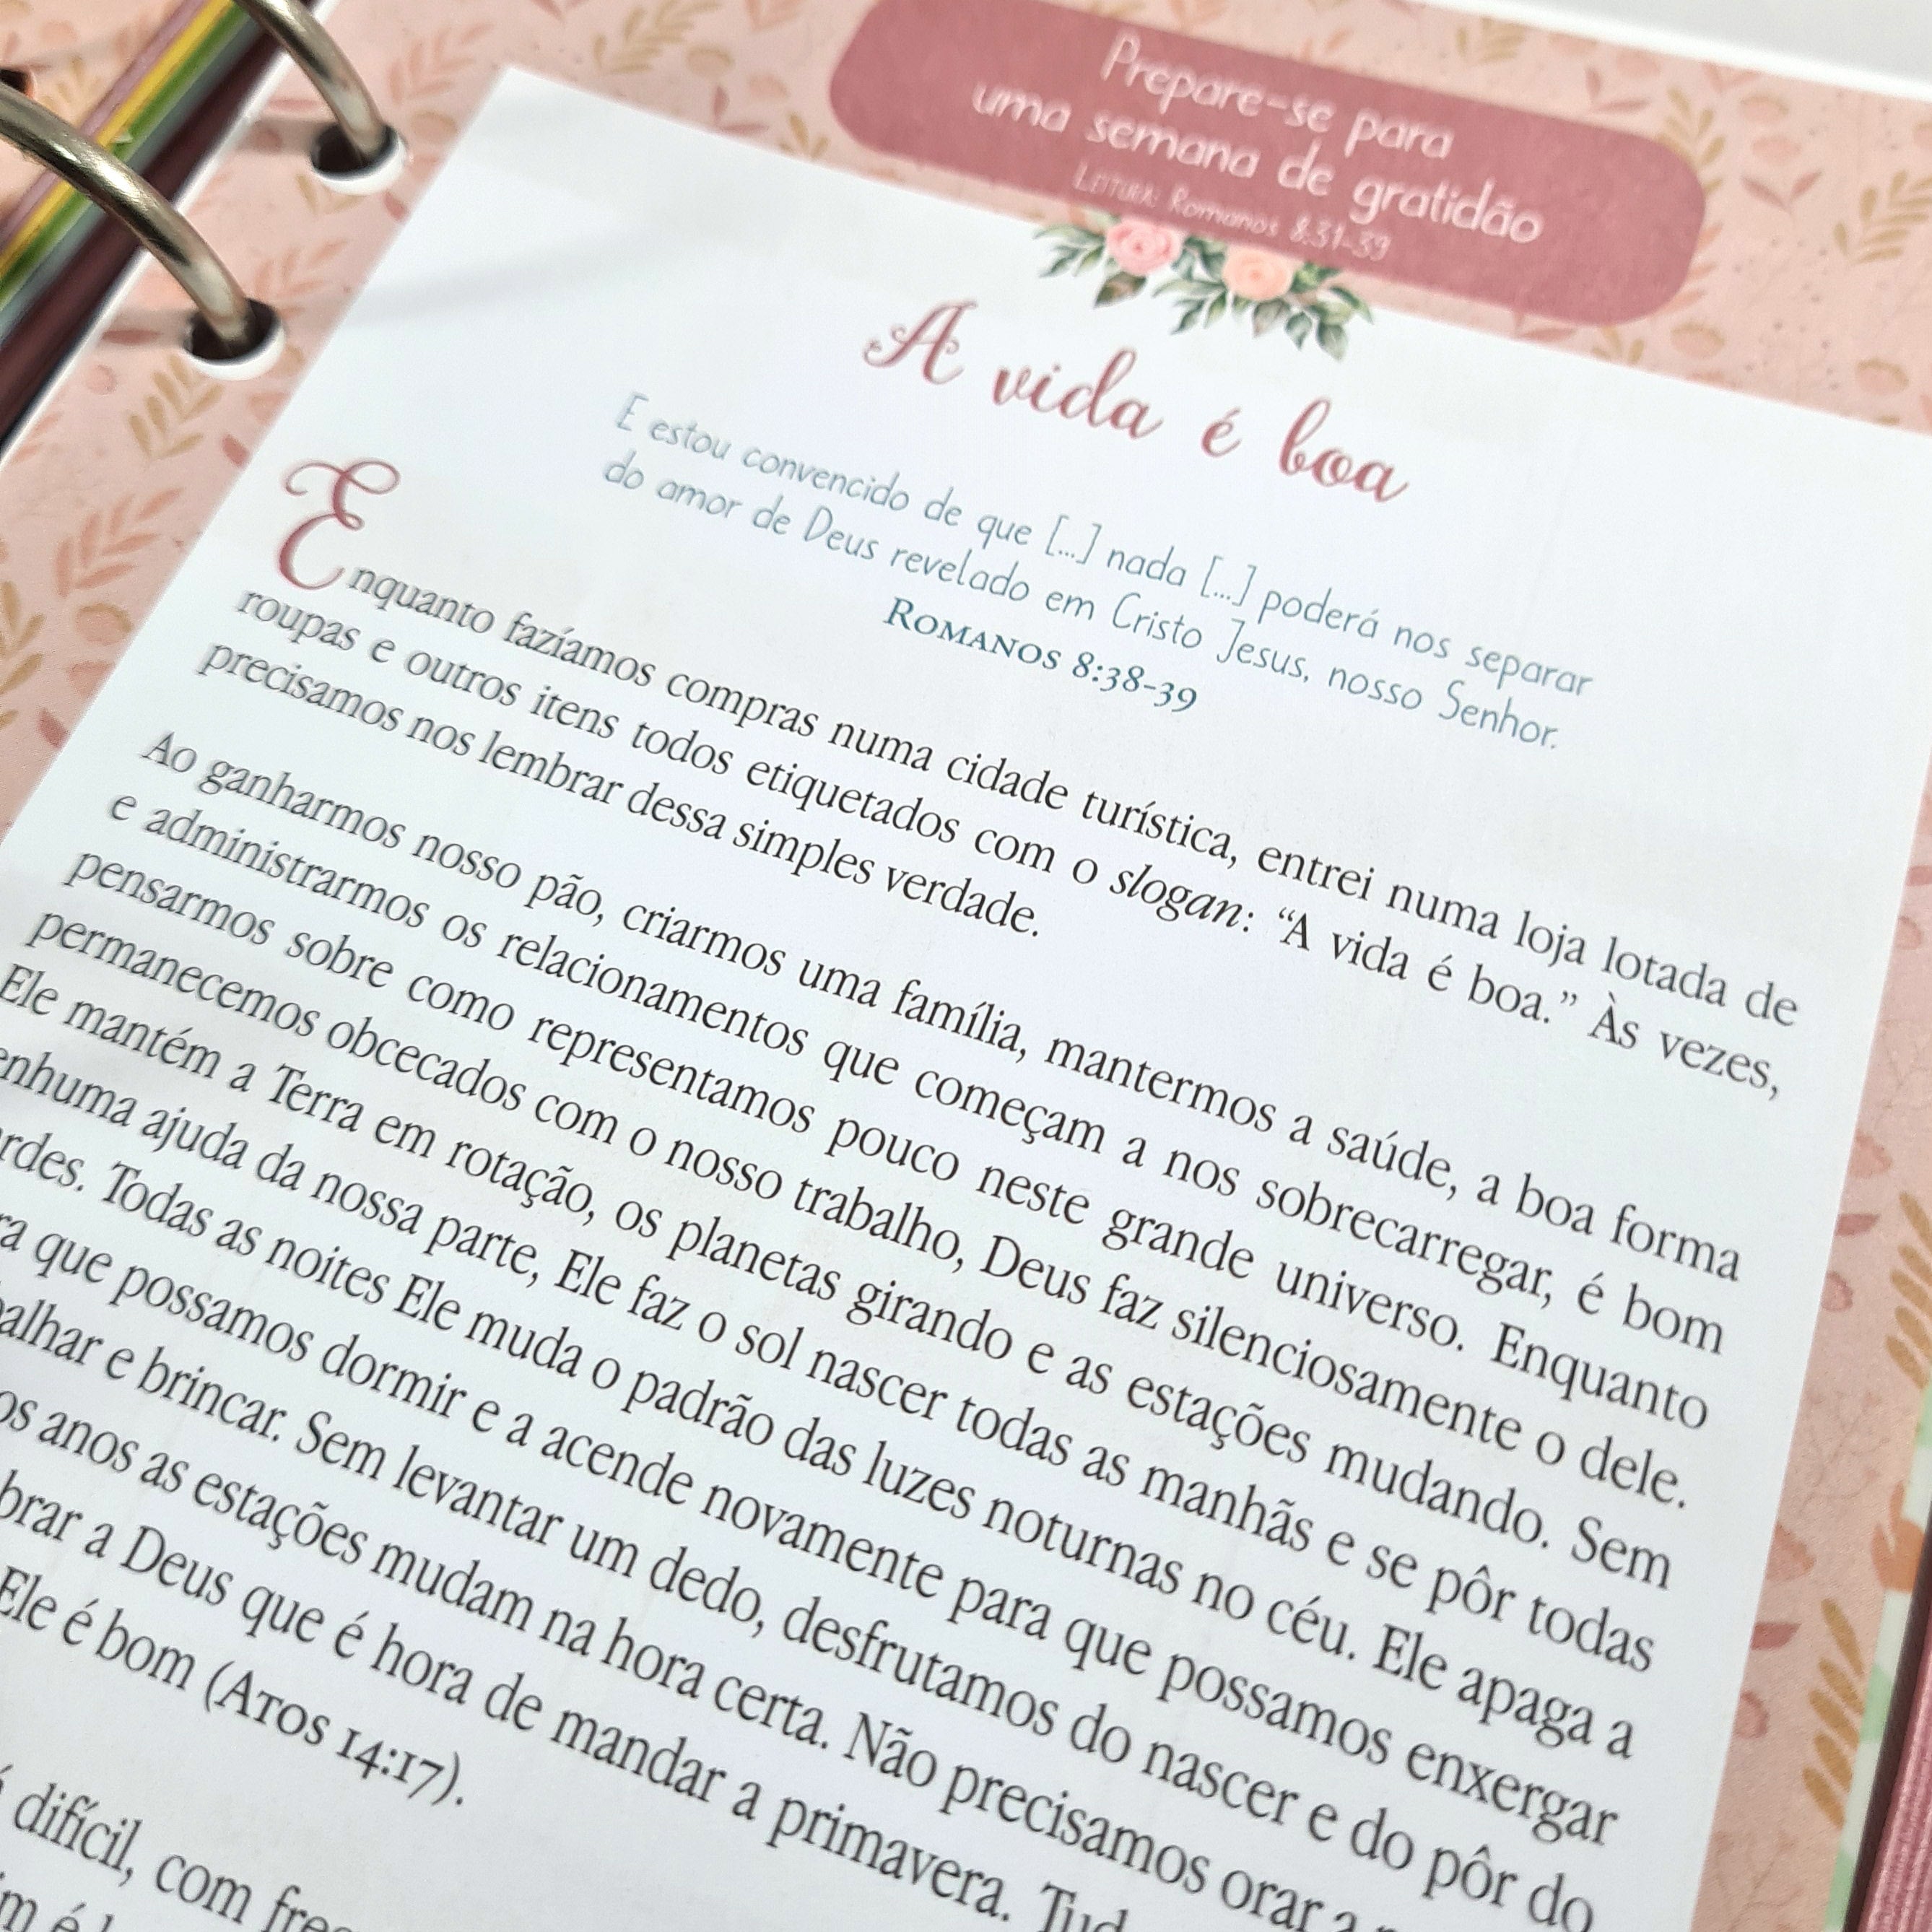 Prepare-se para
uma semana de gratidão
Leitura: Romanos 8:31-39
A vida é boa
E estou convencido de que [...] nada [...] poderá nos separar
do amor de Deus revelado em Cristo Jesus, nosso Senhor.
Romanos 8:38-39
Enquanto fazíamos compras numa cidade turística, entrei numa loja lotada de
roupas e outros itens todos etiquetados com o slogan: “A vida é boa.” Às vezes,
precisamos nos lembrar dessa simples verdade.
Ao ganharmos nosso pão, criarmos uma família, mantermos a saúde, a boa forma
e administrarmos os relacionamentos que começam a nos sobrecarregar, é bom
pensarmos sobre como representamos pouco neste grande universo. Enquanto
permanecemos obcecados com o nosso trabalho, Deus faz silenciosamente o dele.
Ele mantém a Terra em rotação, os planetas girando e as estações mudando. Sem
ajuda da nossa parte, Ele faz o sol nascer todas as manhãs e se pôr todas
Todas as noites Ele muda o padrão das luzes noturnas no céu. Ele apaga a
que possamos dormir e a acende novamente para que possamos enxergar
e brincar. Sem levantar um dedo, desfrutamos do nascer e do pôr do
anos as estações mudam na hora certa. Não precisamos orar
a Deus que é hora de mandar a primavera.
Ele é bom (Atos 14:17).
difícil, com
é